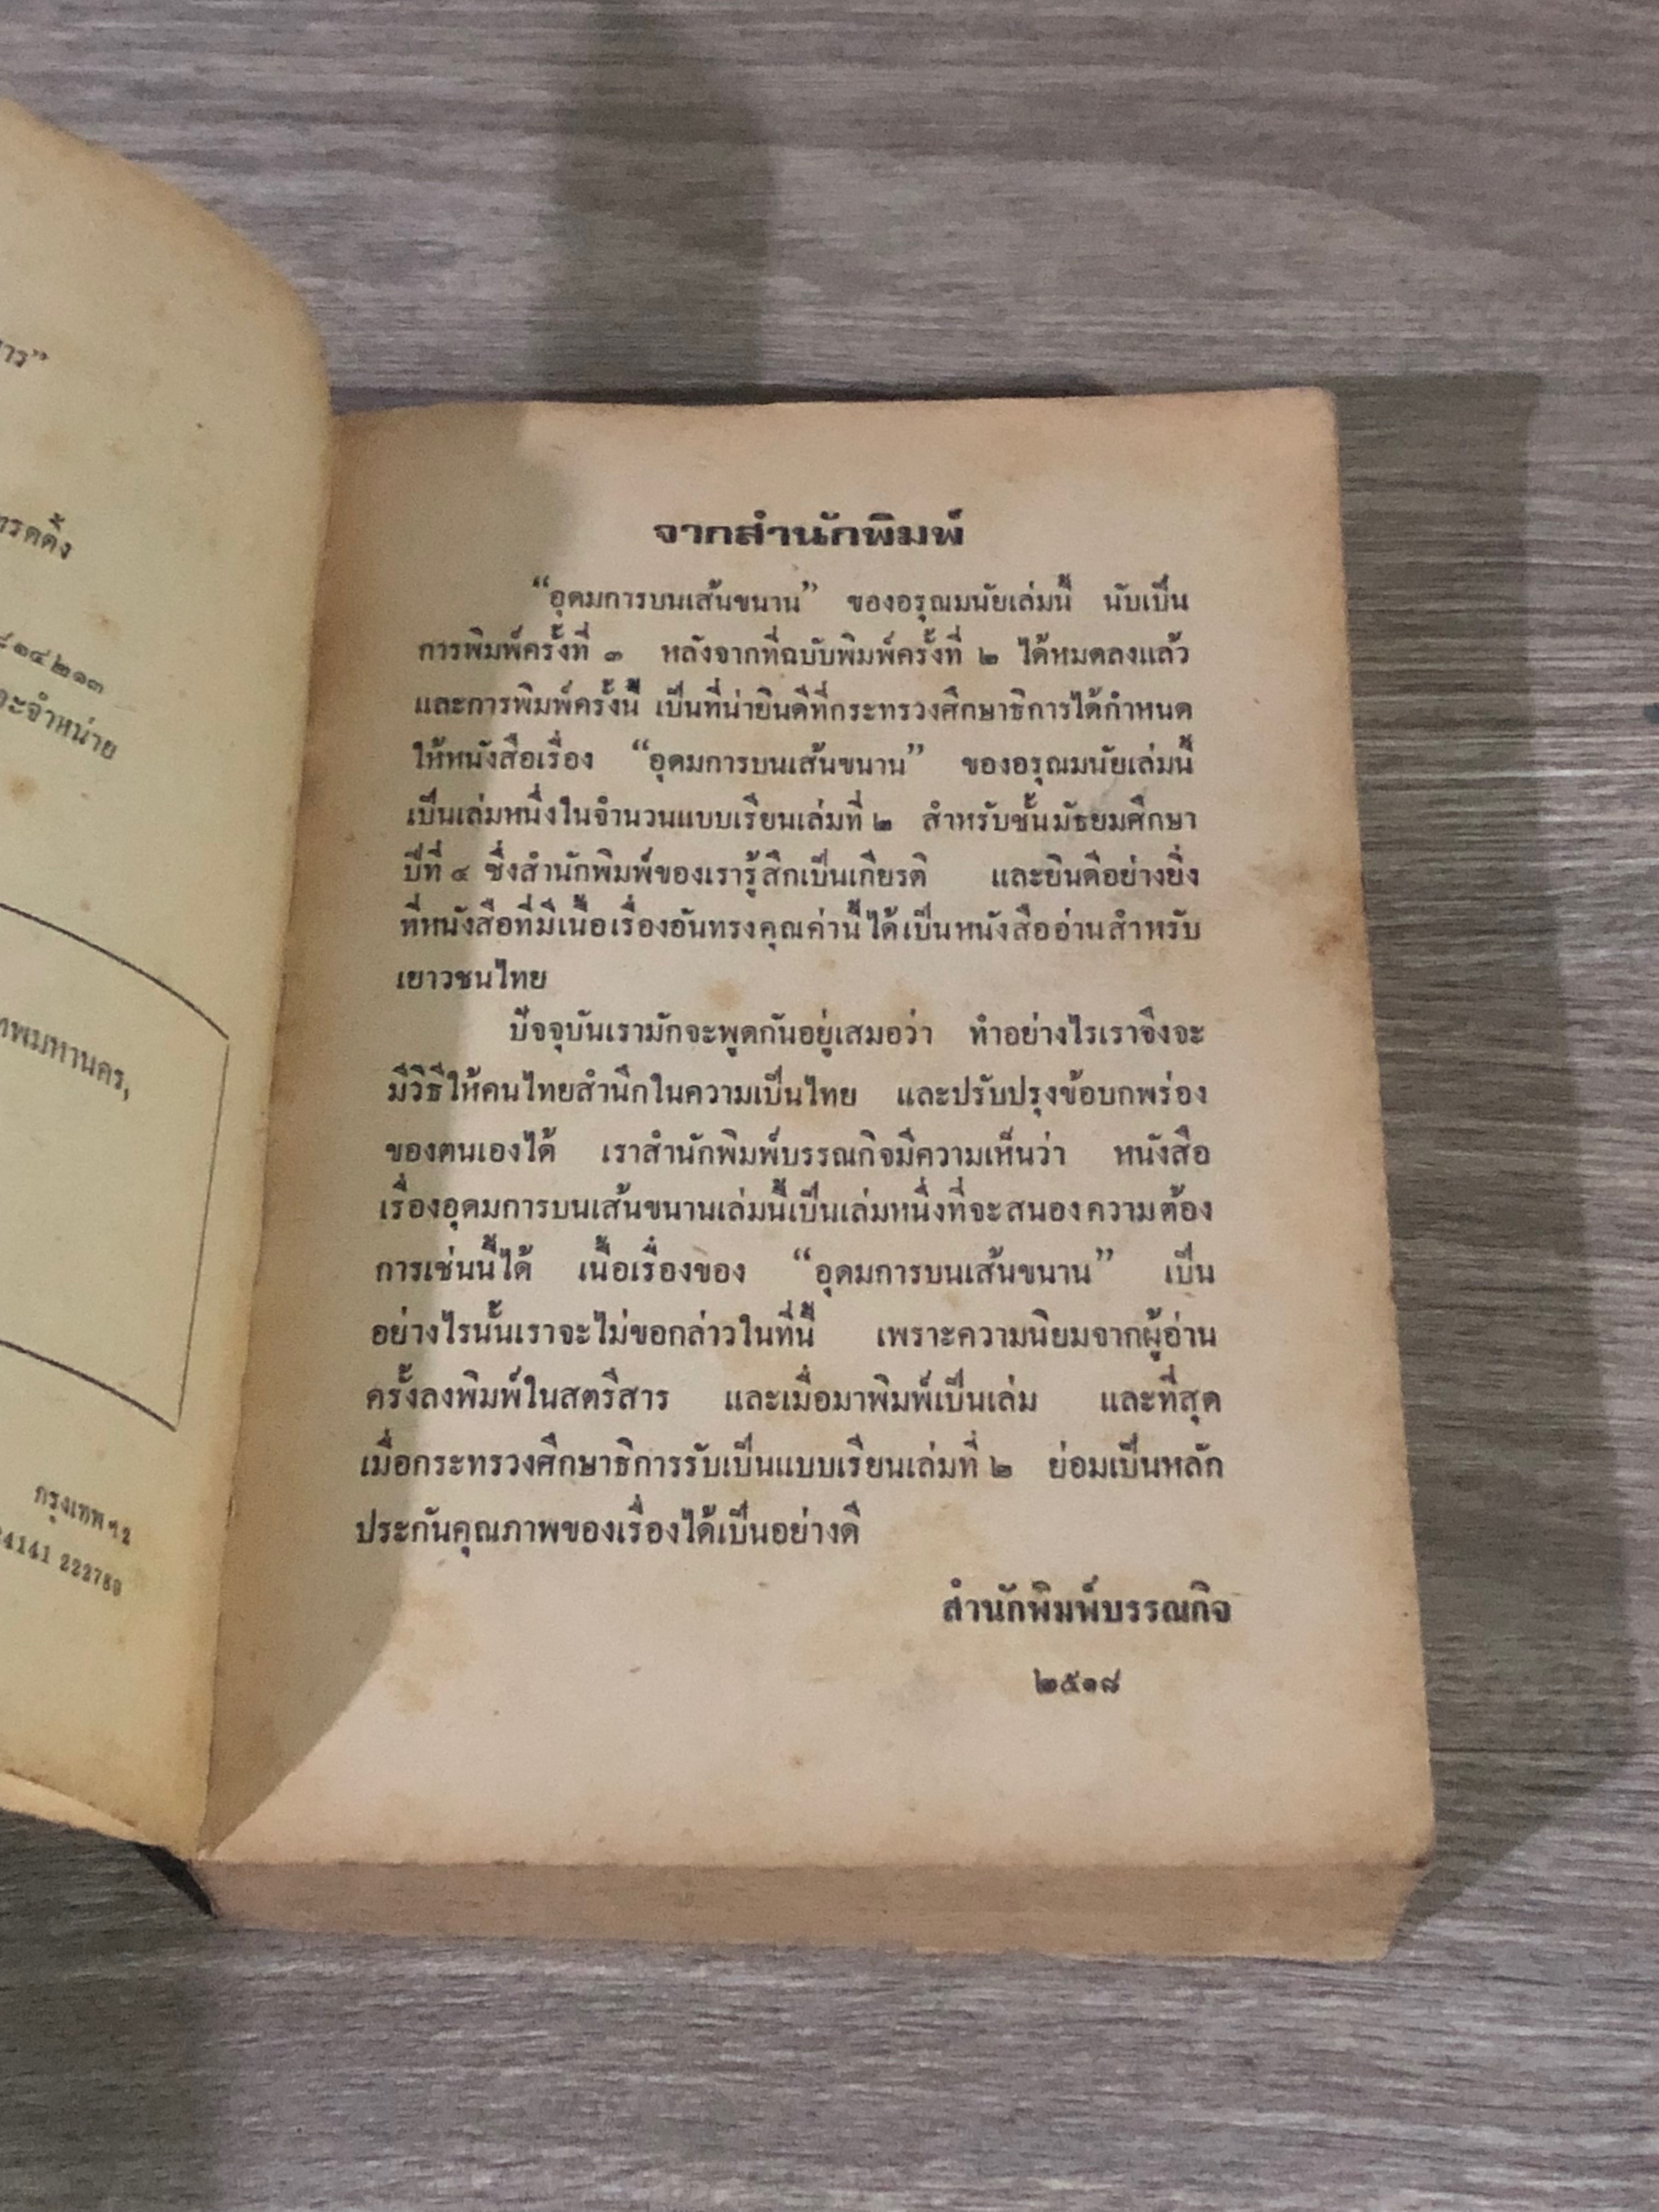 การ”
เทรดดิ้ง
๘๑๔๒๑๓
และจำหน่าย
เทพมหานคร,
กรุงเทพฯ2
4141 222789
จากสำนักพิมพ์
“อุดมการบนเส้นขนาน” ของอรุณมนัยเล่มนี้ นับเป็น
การพิมพ์ครั้งที่ ๓ หลังจากที่ฉบับพิมพ์ครั้งที่ ๒ ได้หมดลงแล้ว
และการพิมพ์ครั้งนี้ เป็นที่น่ายินดีที่กระทรวงศึกษาธิการได้กำหนด
ให้หนังสือเรื่อง “อุดมการบนเส้นขนาน” ของอรุณมนัยเล่มนี้
เป็นเล่มหนึ่งในจำนวนแบบเรียนเล่มที่ ๒ สำหรับชั้นมัธยมศึกษา
ปีที่ ๔ ซึ่งสำนักพิมพ์ของเรารู้สึกเป็นเกียรติ และยินดีอย่างยิ่ง
ที่หนังสือที่มีเนื้อเรื่องอันทรงคุณค่านี้ได้เป็นหนังสืออ่านสำหรับ
เยาวชนไทย
ปัจจุบันเรามักจะพูดกันอยู่เสมอว่า ทำอย่างไรเราจึงจะ
มีวิธีให้คนไทยสำนึกในความเป็นไทย และปรับปรุงข้อบกพร่อง
ของตนเองได้ เราสำนักพิมพ์บรรณกิจมีความเห็นว่า หนังสือ
เรื่องอุดมการบนเส้นขนานเล่มนี้เป็นเล่มหนึ่งที่จะสนองความต้อง
การเช่นนี้ได้ เนื้อเรื่องของ “อุดมการบนเส้นขนาน” เป็น
อย่างไรนั้นเราจะไม่ขอกล่าวในที่นี้ เพราะความนิยมจากผู้อ่าน
ครั้งลงพิมพ์ในสตรีสาร และเมื่อมาพิมพ์เป็นเล่ม และที่สุด
เมื่อกระทรวงศึกษาธิการรับเป็นแบบเรียนเล่มที่ ๒ ย่อมเป็นหลัก
ประกันคุณภาพของเรื่องได้เป็นอย่างดี
สำนักพิมพ์บรรณกิจ
๒๕๑๘